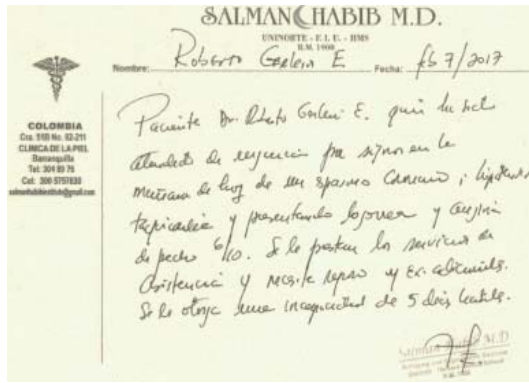 SALMAN HABIB M.D.
UNINORTE - E. I. U. - HMS
R.M. 1900
Nombre: Roberto Gerlein E Fecha: feb 7/2017
COLOMBIA
CLINICA DE LA PIEL
Barranquilla
Tel: 304 89 76
Cel: 300 5757830
Paciente Dr. Roberto Gerlein E. quien ha sido
atendido de urgencia por signos en la
mañana de hoy de un espasmo coronario;
taquicardia y presentando y angina
de pecho 6/10. Se le prestan los servicios de
asistencia y necesita reposo y Ex. adicionales.
Se le otorga una incapacidad de 5 dias